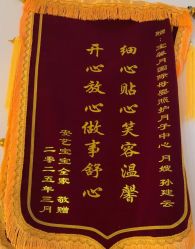 赠：宝馨月国际母婴照护月子中心 月嫂 孙建云
细心贴心笑容温馨
开心放心做事舒心
安艺宝宝全家 敬赠
二〇二五年三月